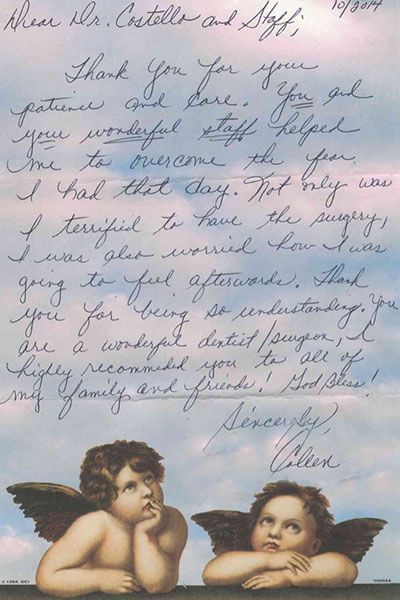 10/2014
Dear Dr. Costello and Staff,
Thank You for your
patience and Care. You and
your wonderful staff helped
me to overcome the fear
I had that day. Not only was
I terrified to have the surgery,
I was also worried how I was
going to feel afterwards. Thank
you for being so understanding. You
are a wonderful dentist/surgeon, I
highly recommend you to all of
my family and friends! God Bless!
Sincerely,
Collen
© 1994, DCI